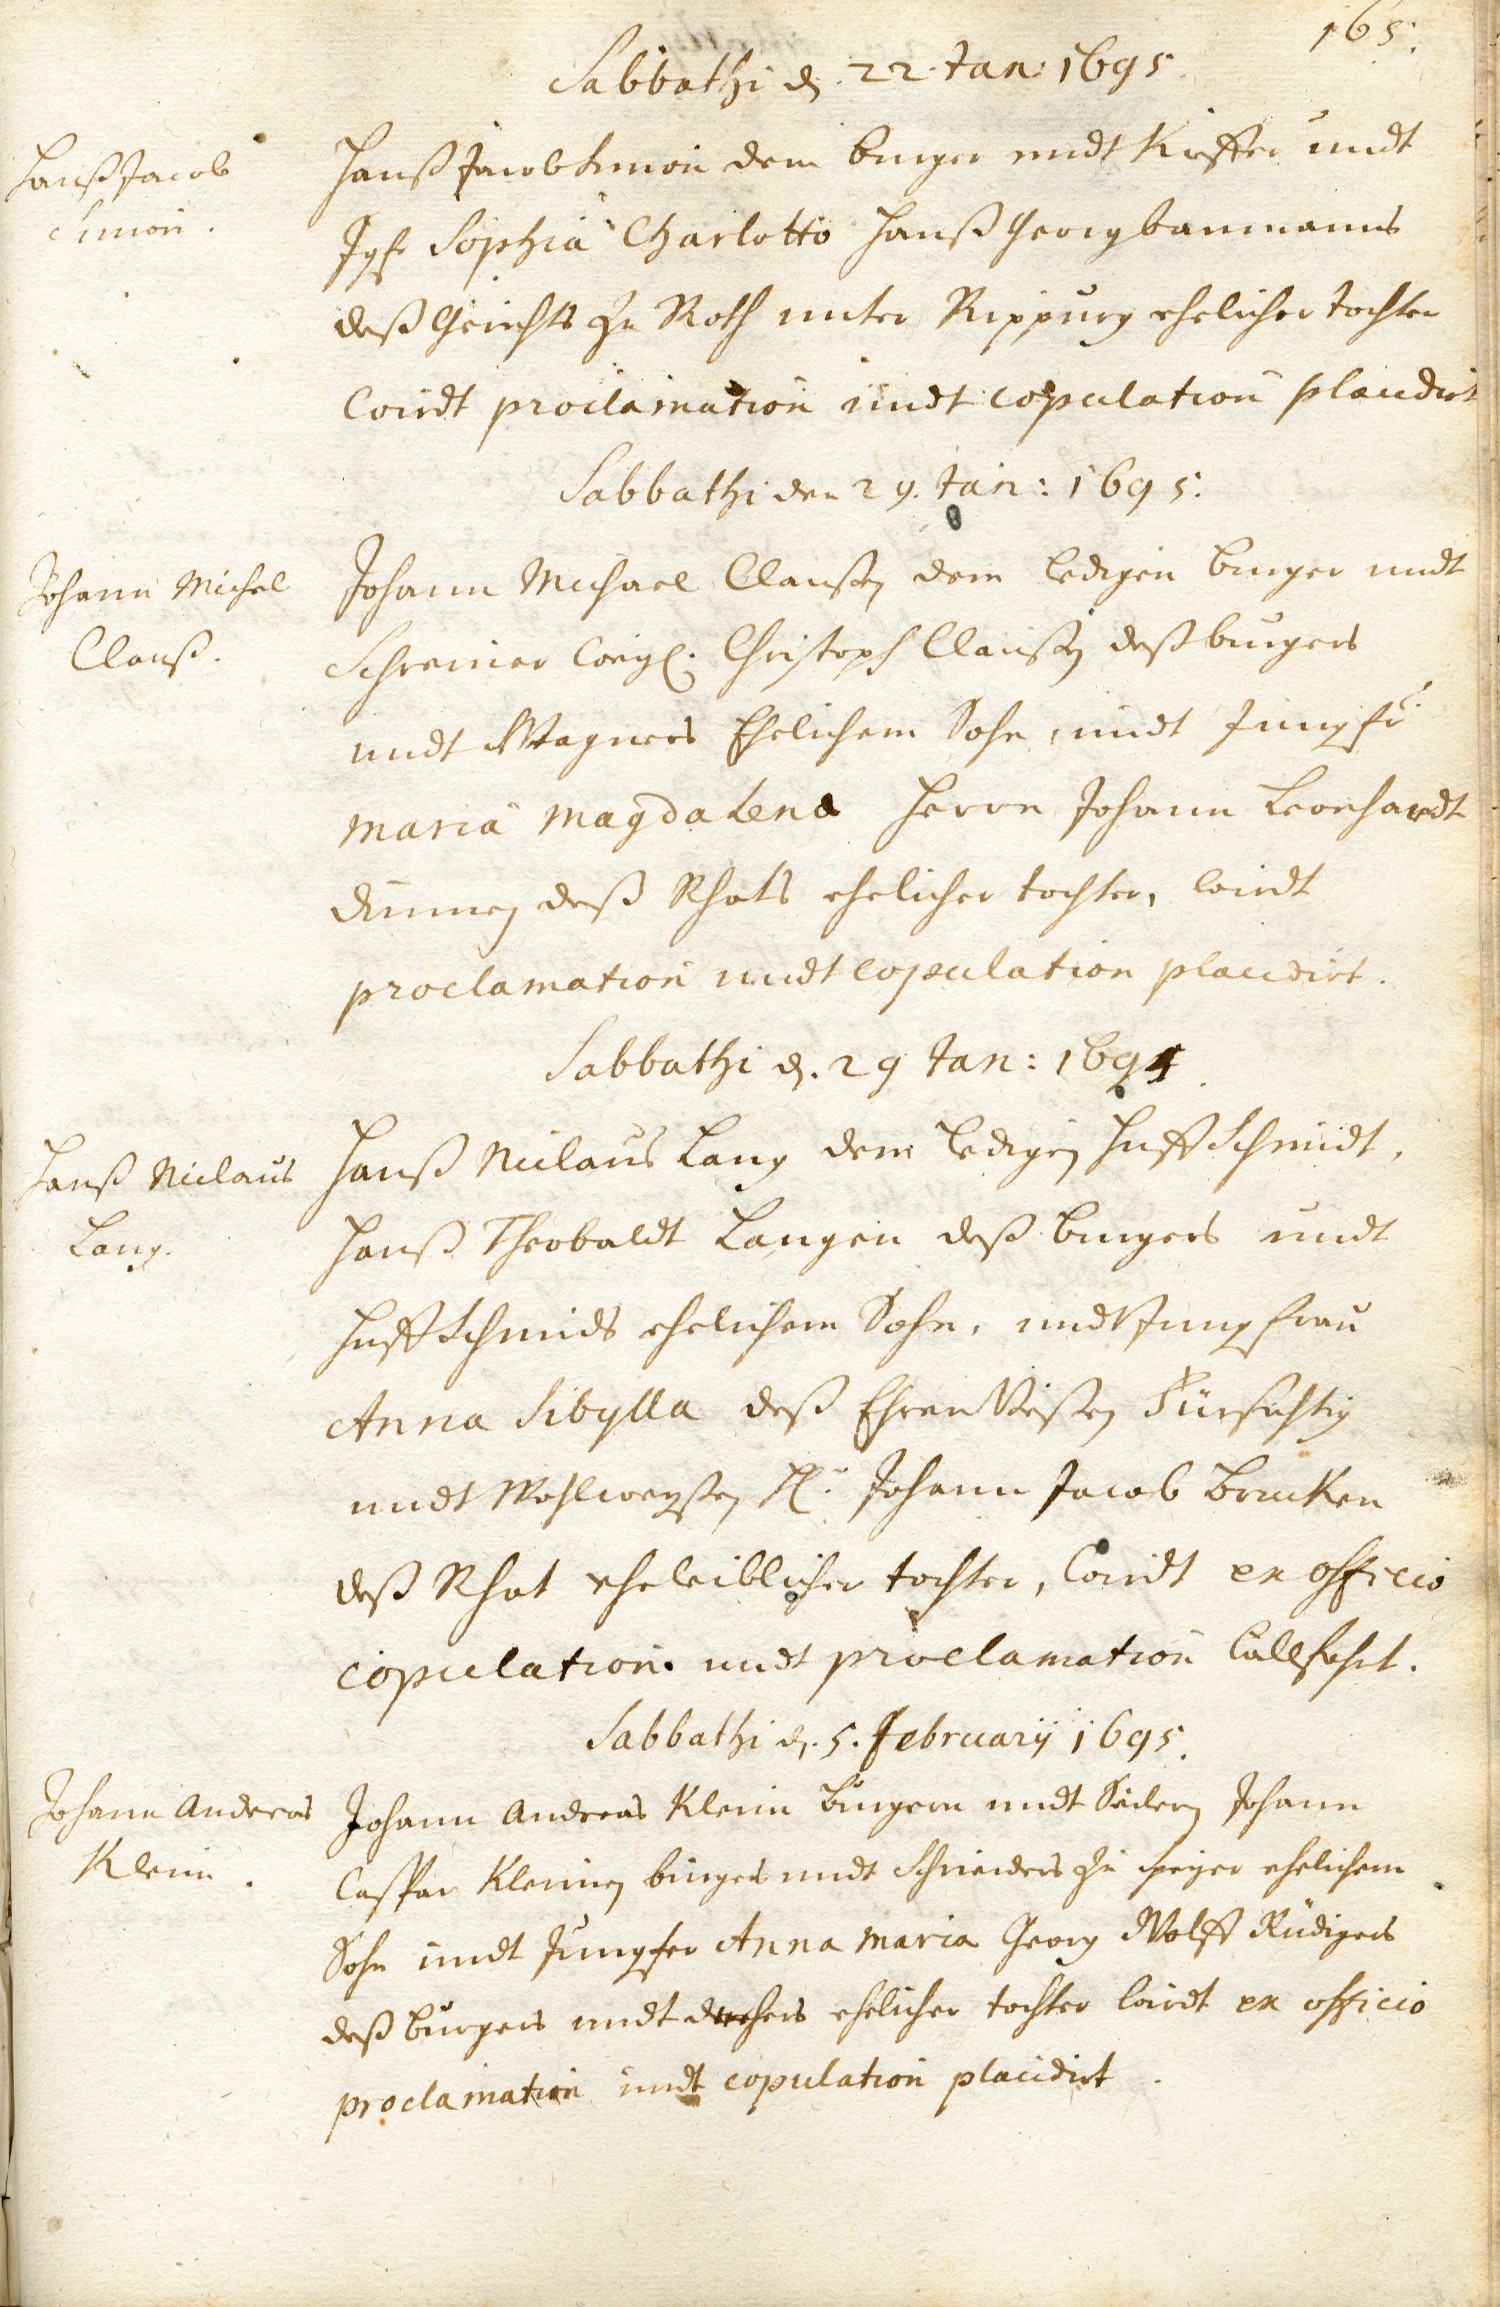 165.
Sabbathi d. 22. Jan: 1695.
Hanß Jacob
Simon.
Hanß Jacob Simon dem burger undt Kieffer undt
Jgfr Sophia Charlotta Hanß Georg baumanns
deß Gerichts Zu Roth unter Rippurg ehelicher tochter
wirdt proclamation undt copulation placidirt
Sabbathi den 29. Jan: 1695.
Johann Michel
Clauß.
Johann Michael Claußen dem ledigen burger undt
Schreiner weyl. Christoph Claußen deß burgers
undt Wagners Ehelichem Sohn, undt Jungfr
Maria Magdalena Herrn Johann Leonhardt
deß Rhats ehelicher tochter, wirdt
proclamation undt copulation placidirt.
Sabbathi d. 29 Jan: 1695.
Hanß Niclaus
Lang.
Hanß Niclaus Lang dem ledigen Huffschmidt,
Hanß Theobaldt Langen deß burgers undt
Huffschmids ehelichem Sohn, undt Jungfrau
Anna Sibylla deß Ehren Vesten Fürsichtig
undt Wohlweysen H. Johann Jacob Brucken
deß Rhat eheleiblicher tochter, wirdt ex officio
copulation undt proclamation willfahrt.
Sabbathi d. 5. february 1695.
Johann Andreas
Klein.
Johann Andreas Klein burgern undt Seilern Johann
Caspar Kleinen burgers undt Schneiders Zu speyer ehelichem
Sohn undt Jungfer Anna Maria Georg Wolff Rüdigers
deß burgers undt drehers ehelicher tochter wirdt ex officio
proclamation undt copulation placidirt.